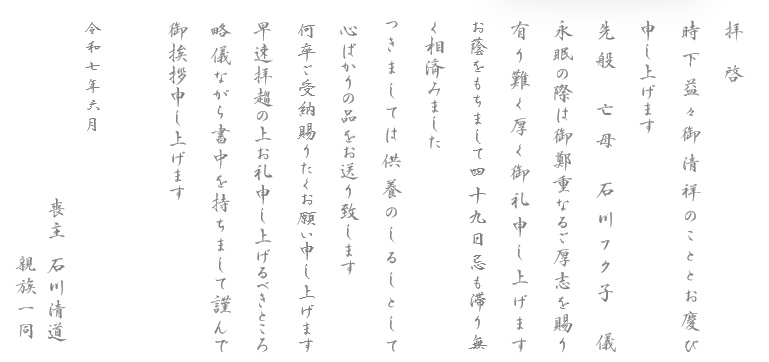 拝啓
時下益々御清祥のこととお慶び
申し上げます
先般 亡母 石川フク子 儀
永眠の際は御鄭重なるご厚志を賜り
有り難く厚く御礼申し上げます
お蔭をもちまして四十九日忌も滞り無
く相済みました
つきましては供養のしるしとして
心ばかりの品をお送り致します
何卒ご受納賜りたくお願い申し上げます
早速拝趨の上お礼申し上げるべきところ
略儀ながら書中を持ちまして謹んで
御挨拶申し上げます
令和七年六月
喪主 石川清道
親族一同